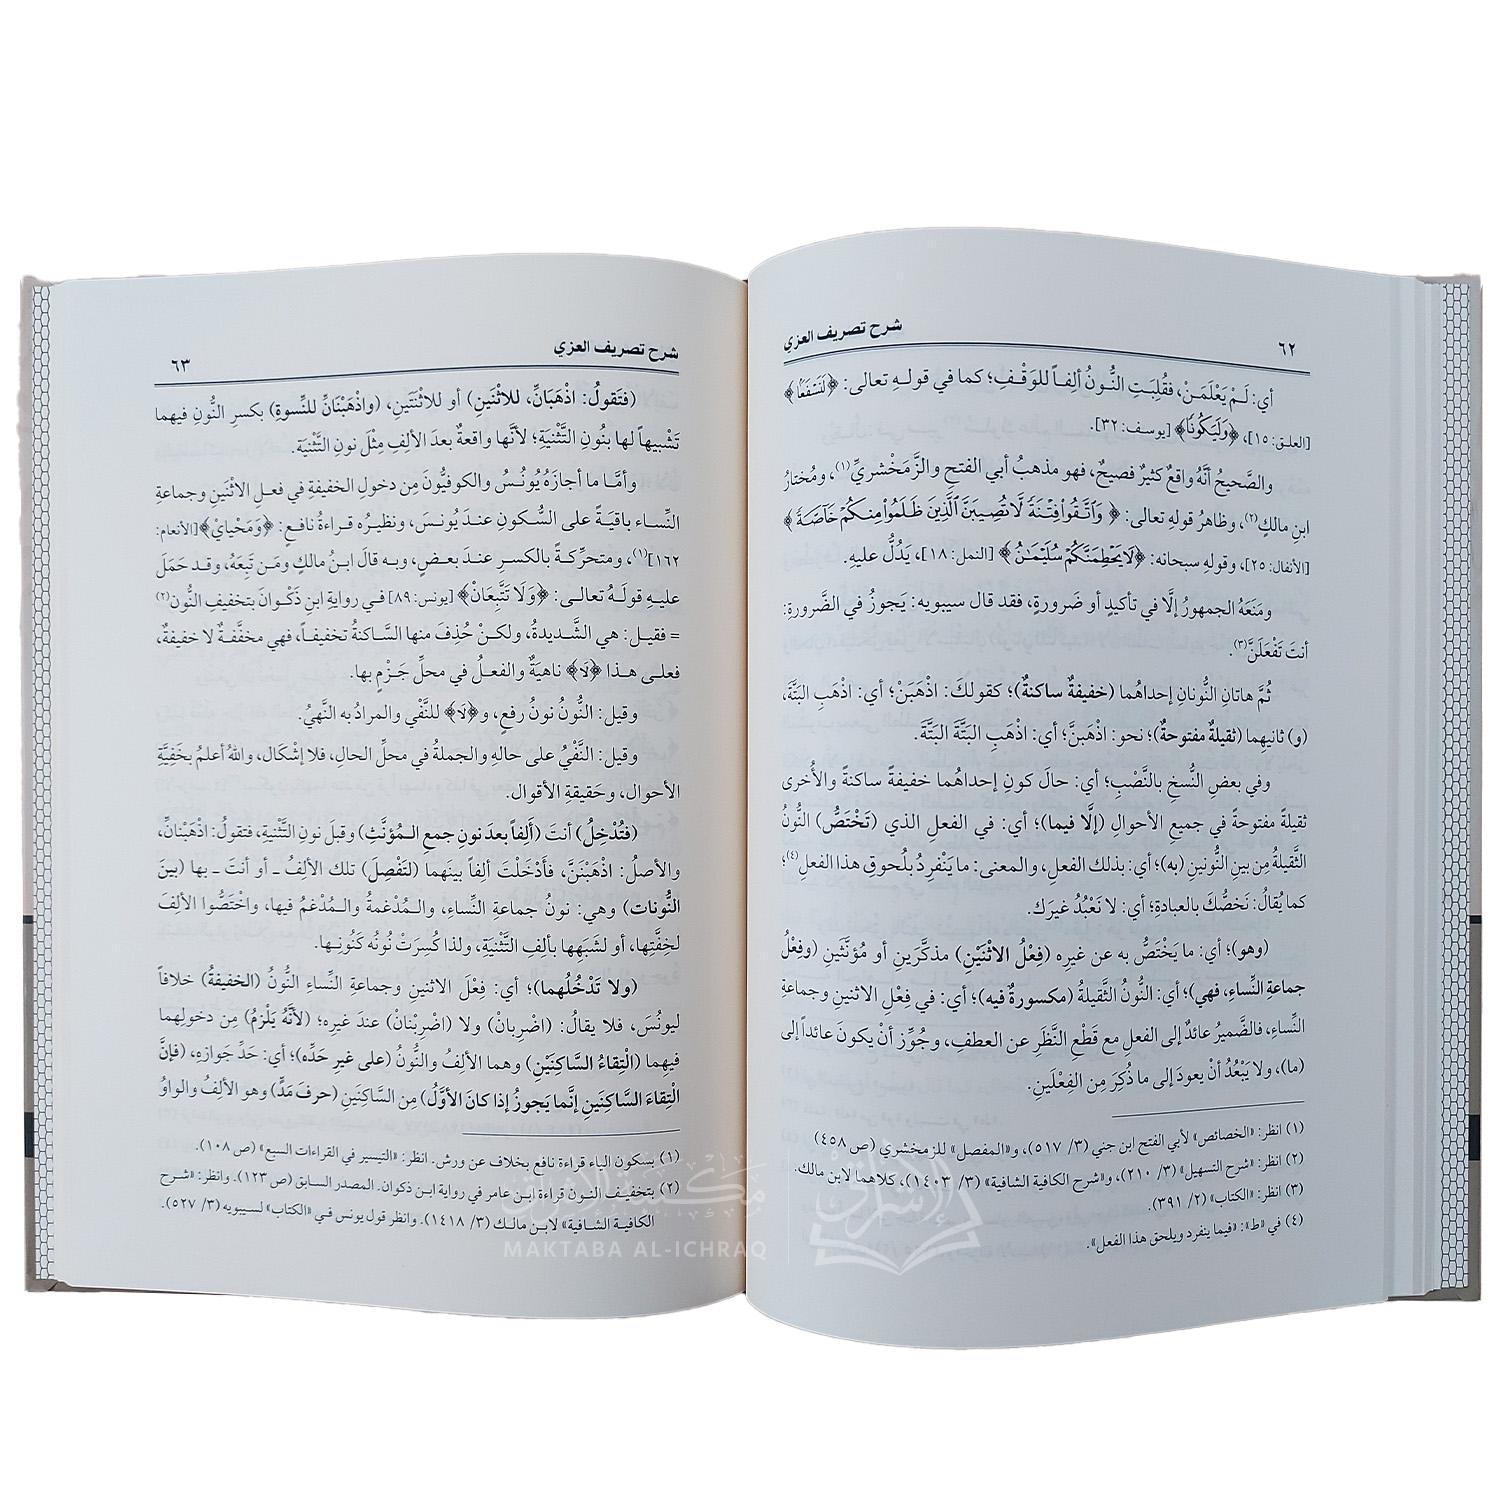 ٦٢ شرح تصريف العزي
أي: لَمْ يَعْلَمَنْ، فقُلِبَتِ النُّونُ ألِفاً للوَقْفِ؛ كما في قولهِ تعالى: ﴿لَنَسْفَعًا﴾
[العلق: ١٥]، ﴿وَلَيَكُونًا﴾ [يوسف: ٣٢].
والصَّحيحُ أنَّهُ واقعٌ كثيرٌ فصيحٌ، فهو مذهبُ أبي الفتحِ والزَّمَخْشريِّ(١)، ومُختارُ
ابنِ مالكٍ(٢)، وظاهرُ قولهِ تعالى: ﴿وَٱتَّقُوا۟ فِتْنَةً لَّا تُصِيبَنَّ ٱلَّذِينَ ظَلَمُوا۟ مِنكُمْ خَآصَّةً﴾
[الأنفال: ٢٥]، وقولهِ سبحانه: ﴿لَا يَحْطِمَنَّكُمْ سُلَيْمَٰنُ﴾ [النمل: ١٨]، يَدُلُّ عليهِ.
ومَنَعَهُ الجمهورُ إلَّا في تأكيدٍ أو ضَرورةٍ، فقد قال سيبويه: يَجوزُ في الضَّرورةِ:
أنتَ تَفْعَلَنَّ(٣).
ثُمَّ هاتانِ النُّونانِ إحداهُما (خفيفةٌ ساكنةٌ)؛ كقولكَ: اذْهَبَنْ؛ أي: اذْهَبِ البَتَّةَ،
(و) ثانيهما (ثقيلةٌ مفتوحةٌ)؛ نحو: اذْهَبنَّ؛ أي: اذْهَبِ البَتَّةَ البَتَّةَ.
وفي بعضِ النُّسخِ بالنَّصْبِ؛ أي: حالَ كونِ إحداهُما خفيفةً ساكنةً والأُخرى
ثقيلةً مفتوحةً في جميعِ الأحوالِ (إلَّا فيما)؛ أي: في الفعلِ الذي (تَخْتَصُّ) النُّونُ
الثَّقيلةُ مِن بينِ النُّونينِ (به)؛ أي: بذلك الفعلِ، والمعنى: ما يَنْفَرِدُ بلُحوقِ هذا الفعلِ(٤)؛
كما يُقالُ: نَخصُّكَ بالعبادةِ؛ أي: لا نَعْبُدُ غيرَك.
(وهو)؛ أي: ما يَخْتَصُّ به عن غيرِه (فِعْلُ الاثْنَيْنِ) مذكَّرَينِ أو مُؤنَّثَينِ (وفِعْلُ
جماعةِ النِّساءِ، فهي)؛ أي: النُّونُ الثَّقيلةُ (مكسورةٌ فيه)؛ أي: في فِعْلِ الاثنينِ وجماعةِ
النِّساءِ، فالضَّميرُ عائدٌ إلى الفعلِ مع قَطْعِ النَّظَرِ عن العطفِ، وجُوِّز أنْ يكونَ عائداً إلى
(ما)، ولا يَبْعُدُ أنْ يعودَ إلى ما ذُكِرَ مِن الفِعْلَينِ.
(١) انظر: «الخصائص» لأبي الفتح ابن جني (٣/ ٥١٧)، و«المفصل» للزمخشري (ص ٤٥٨)
(٢) انظر: «شرح التسهيل» (٣/ ٢١٠)، و«شرح الكافية الشافية» (٣/ ١٤٠٣)، كلاهما لابن مالك.
(٣) انظر: «الكتاب» (٢/ ٣٩١).
(٤) في «ط»: «فيما ينفرد ويلحق هذا الفعل».
شرح تصريف العزي ٦٣
(فتَقولُ: اذْهَبَانِّ، للاثْنَينِ) أو للاثْنَتَينِ، (واذْهَبْنَانِّ للنِّسوةِ) بكسرِ النُّونِ فيهما
تَشْبيهاً لها بنُونِ التَّثْنيةِ؛ لأنَّها واقعةٌ بعدَ الألفِ مِثْلَ نونِ التَّثْنيَة.
وأمَّا ما أجازَهُ يُونُسُ والكوفيُّونَ مِن دخولِ الخفيفةِ في فعلِ الاثْنَينِ وجماعةِ
النِّساء باقيَةً على السُّكونِ عندَ يُونسَ، ونظيرُه قراءةُ نافعٍ: ﴿وَمَحْيايْ﴾ [الأنعام:
١٦٢](١)، ومتحرِّكةً بالكسرِ عندَ بعضٍ، وبه قالَ ابنُ مالكٍ ومَن تَبِعَهُ، وقد حَمَلَ
عليهِ قولَهُ تعالى: ﴿وَلَا تَتَّبِعَانْ﴾ [يونس: ٨٩] في روايةِ ابنِ ذَكْوانَ بتخفيفِ النُّون(٢)
= فقيل: هي الشَّديدةُ، ولكنْ حُذِفَ منها السَّاكنةُ تخفيفاً، فهي مخفَّفةٌ لا خفيفةٌ،
فعلى هذا ﴿لَا﴾ ناهيَةٌ والفعلُ في محلِّ جَزْمٍ بها.
وقيل: النُّونُ نونُ رفعٍ، و﴿لَا﴾ للنَّفْي والمرادُ به النَّهيُ.
وقيل: النَّفْيُ على حاله والجملةُ في محلِّ الحال، فلا إشْكال، واللهُ أعلمُ بخَفيَّةِ
الأحوال، وحَقيقةِ الأقوال.
(فتُدْخِلُ) أنتَ (ألِفاً بعدَ نونِ جمعِ المُؤنَّثِ) وقبلَ نونِ التَّثنيةِ، فتقولُ: اذْهَبْنانِّ،
والأصلُ: اذْهَبْنَنَّ، فأَدْخَلْتَ ألِفاً بينَهما (لتَفْصِلَ) تلك الألِفُ ـ أو أنتَ ـ بها (بينَ
النُّونات) وهي: نونُ جماعةِ النِّساءِ، والمُدْغمةُ والمُدْغمُ فيها، واخْتَصُّوا الألِفَ
لخِفَّتِها، أو لشَبَهِها بألِفِ التَّثْنيَةِ، ولذا كُسِرَتْ نُونُه كَنُونِها.
(ولا تَدْخُلُهما)؛ أي: فِعْلَ الاثنينِ وجماعةِ النِّساءِ النُّونُ (الخفيفةُ) خلافاً
ليونُسَ، فلا يقالُ: (اضْرِبانْ) ولا (اضْرِبْنانْ) عندَ غيرِه؛ (لأنَّهُ يَلْزَمُ) مِن دخولِهما
فيهِما (الْتِقاءُ السَّاكنَيْنِ) وهما الألفُ والنُّونُ (على غيرِ حَدِّه)؛ أي: حَدِّ جَوازِه، (فإنَّ
الْتِقاءَ السَّاكنَينِ إنَّما يَجوزُ إذا كانَ الأوَّلُ) مِن السَّاكِنَينِ (حرفَ مَدٍّ) وهو الألِفُ والواوُ
(١) بسكون الياء قراءة نافع بخلاف عن ورش. انظر: «التيسير في القراءات السبع» (ص ١٠٨).
(٢) بتخفيف النون قراءة ابن عامر في رواية ابن ذكوان. المصدر السابق (ص ١٢٣). وانظر: «شرح
الكافية الشافية» لابن مالك (٣/ ١٤١٨). وانظر قول يونس في «الكتاب» لسيبويه (٣/ ٥٢٧).
مكتبة الإشراق
MAKTABA AL-ICHRAQ
الإشراق